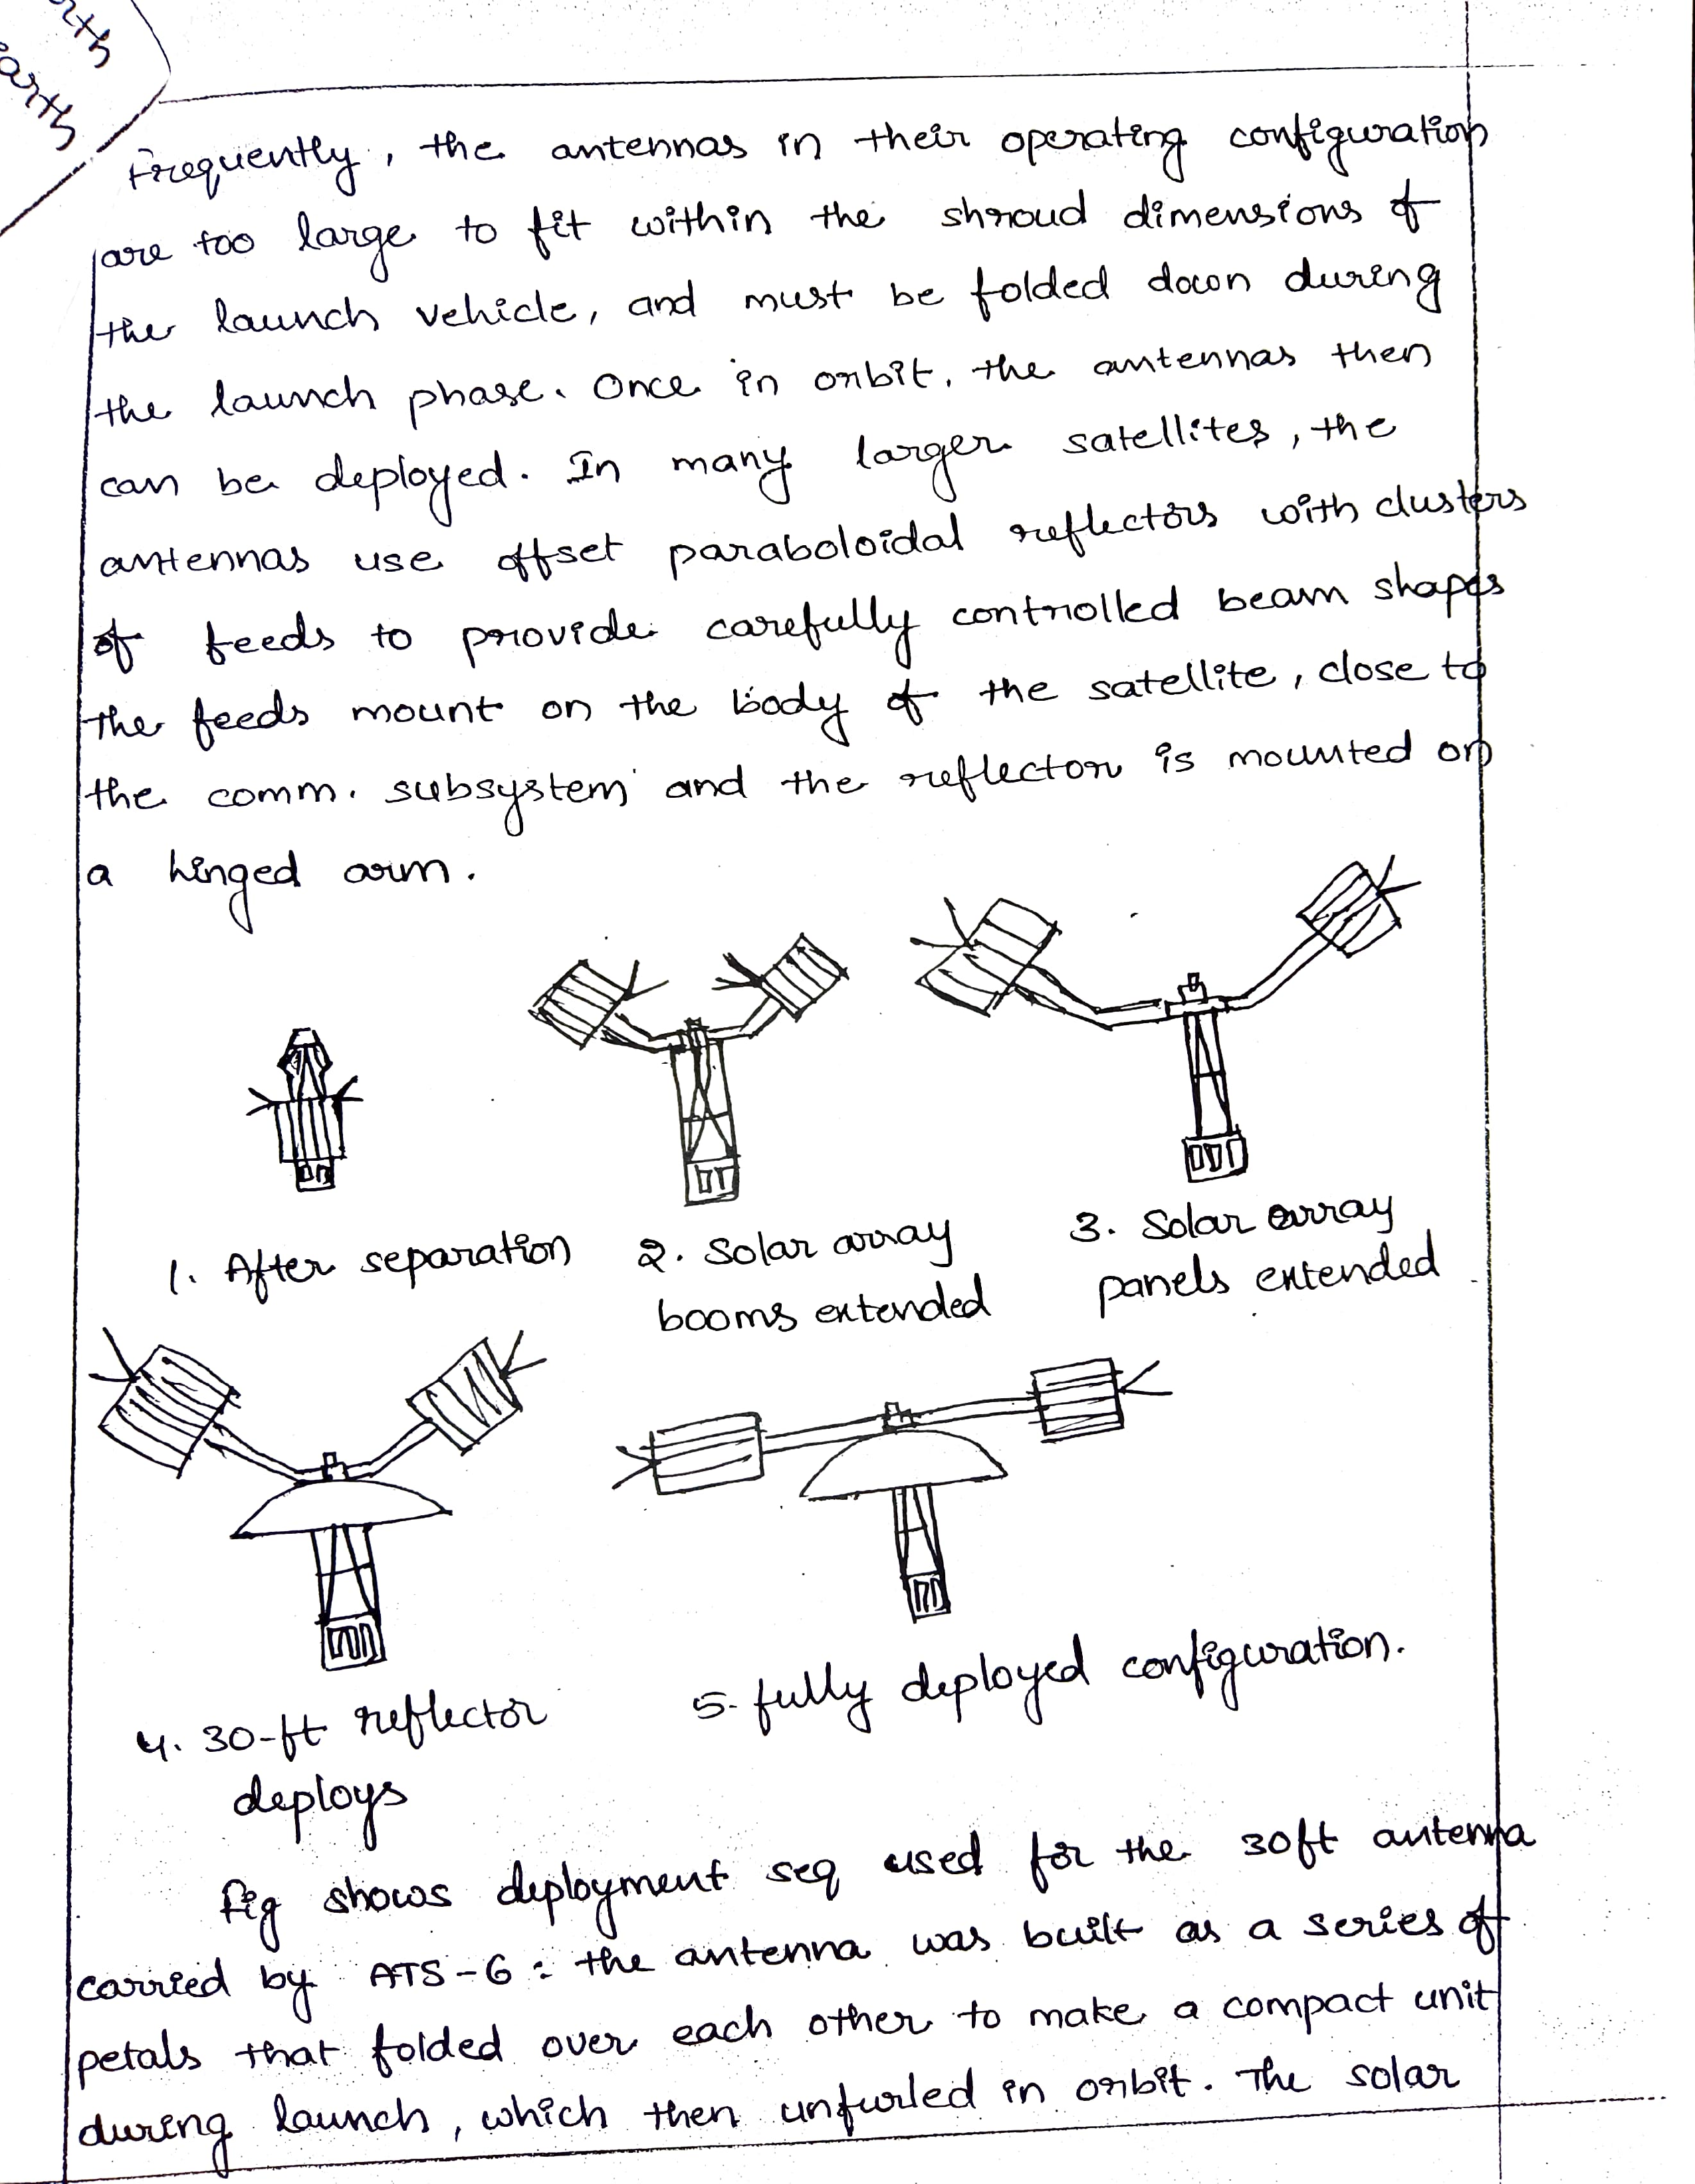 earth
Frequently, the antennas in their operating configuration
are too large to fit within the shroud dimensions of
the launch vehicle, and must be folded down during
the launch phase. Once in orbit, the antennas then
can be deployed. In many larger satellites, the
antennas use offset paraboloidal reflectors with clusters
of feeds to provide carefully controlled beam shapes
the feeds mount on the body of the satellite, close to
the comm. subsystem and the reflector is mounted on
a hinged arm.
1. After separation
2. Solar array
booms extended
3. Solar array
panels extended
4. 30-ft reflector
deploys
5. fully deployed configuration.
fig shows deployment seq used for the 30ft antenna
carried by ATS-6: the antenna was built as a series of
petals that folded over each other to make a compact unit
during launch, which then unfurled in orbit. The solar